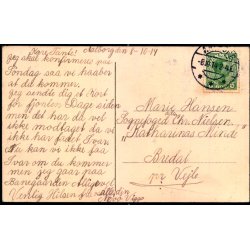 Kære Tante! Aalborg den 8-10-19
Jeg skal konfirmeres paa
Søndag saa vi haaber
at du kommer.
jeg sendte dig et Kort
for fjorten Dage siden
men det har da vel
ikke modtaget da vi
ikke har fidet Svar.
Du kan vi ikke faa
Svar om du kommer
men jeg gaar paa
Banegaarden Alligevel
Venlig Hilsen fra alle
Marie Hansen
Sognefoged Chr. Nielsen
"Katharinas Minde"
Bredal
pr Vejle